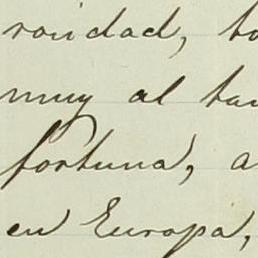 ronidad, to
muy al tan
fortuna, a
en Europa,